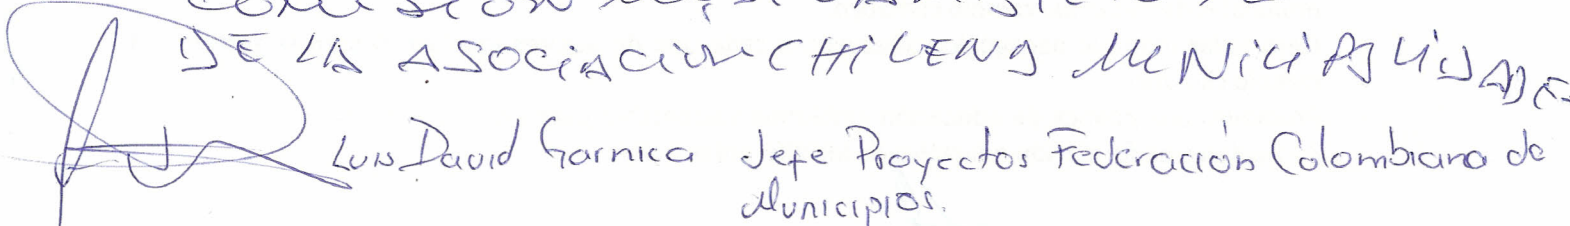 COMISION
DE LA ASOCIACION CHILENA MUNICIPALIDADES
Luis David Garnica Jefe Proyectos Federación Colombiana de
Municipios.